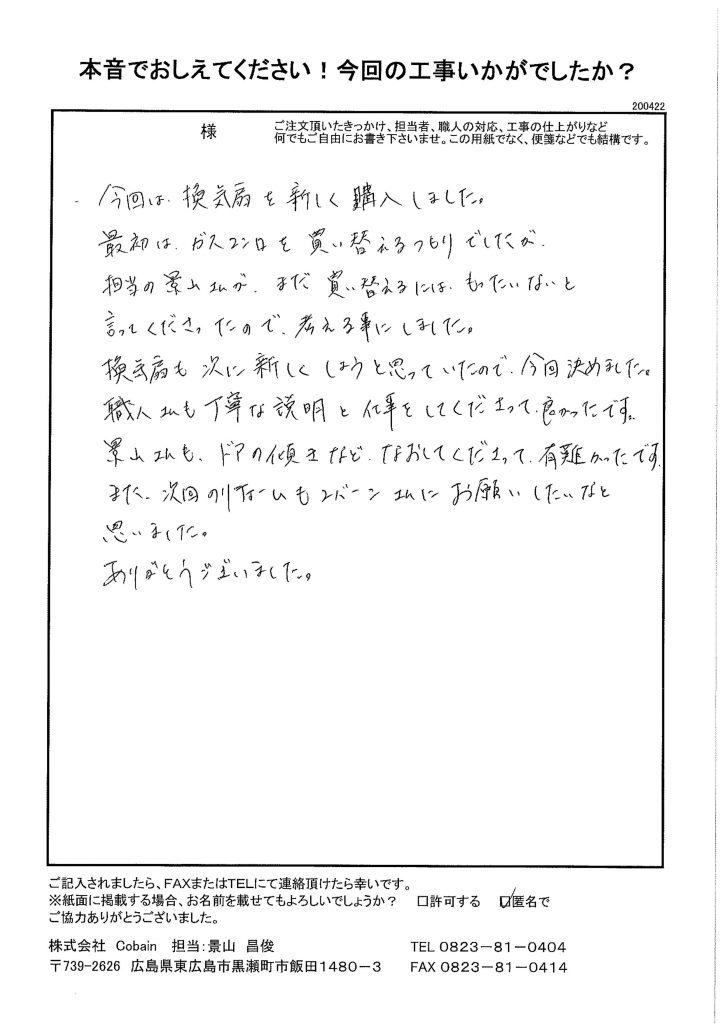 本音でおしえてください！今回の工事いかがでしたか？
200422
様
ご注文頂いたきっかけ、担当者、職人の対応、工事の仕上がりなど
何でもご自由にお書き下さいませ。この用紙でなく、便箋などでも結構です。
今回は、換気扇を新しく購入しました。
最初は、ガスコンロを買い替えるつもりでしたが、
担当の景山さんが、まだ買い替えるには、もったいないと
言ってくださったので、考える事にしました。
換気扇も次に新しくしようと思っていたので、今回決めました。
職人さんも丁寧な説明と仕事をしてくださって、良かったです。
景山さんも、ドアの傾きなど、なおしてくださって、有難かったです。
また、次回のリフォームもコバーンさんにお願いしたいなと
思いました。
ありがとうございました。
ご記入されましたら、FAXまたはTELにて連絡頂けたら幸いです。
※紙面に掲載する場合、お名前を載せてもよろしいでしょうか？ □許可する ☑匿名で
ご協力ありがとうございました。
株式会社 Cobain 担当：景山 昌俊 TEL 0823－81－0404
〒739-2626 広島県東広島市黒瀬町市飯田1480－3 FAX 0823－81－0414